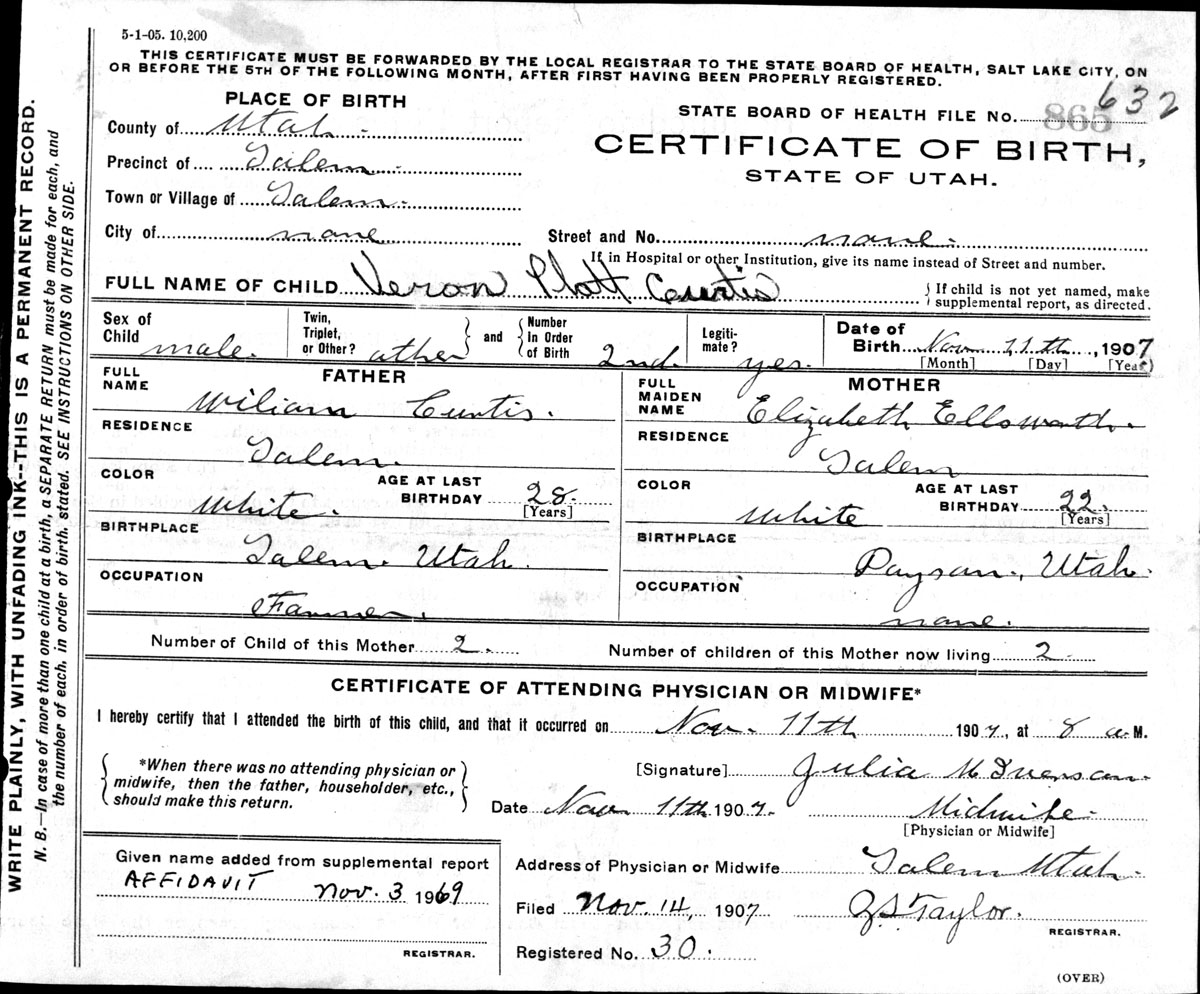 5-1-05. 10,200
THIS CERTIFICATE MUST BE FORWARDED BY THE LOCAL REGISTRAR TO THE STATE BOARD OF HEALTH, SALT LAKE CITY, ON
OR BEFORE THE 5TH OF THE FOLLOWING MONTH, AFTER FIRST HAVING BEEN PROPERLY REGISTERED.
PLACE OF BIRTH
County of Utah.
Precinct of Salem.
Town or Village of Salem.
City of none
STATE BOARD OF HEALTH FILE No. 865 632
CERTIFICATE OF BIRTH,
STATE OF UTAH.
Street and No. none.
If in Hospital or other Institution, give its name instead of Street and number.
FULL NAME OF CHILD Veron Platt Curtis
If child is not yet named, make
supplemental report, as directed.
Sex of Child male.
Twin, Triplet, or Other? other
and
Number In Order of Birth 2nd.
Legiti-mate? yes.
Date of Birth Nov 11th, 1907
[Month] [Day] [Year]
FATHER
FULL NAME Wiliam Curtis.
RESIDENCE
Salem.
COLOR White.
AGE AT LAST BIRTHDAY 28.
[Years]
BIRTHPLACE
Salem. Utah.
OCCUPATION
Farmer.
MOTHER
FULL MAIDEN NAME Elizabeth Ellsworth.
RESIDENCE
Salem
COLOR White
AGE AT LAST BIRTHDAY 22.
[Years]
BIRTHPLACE
Payson., Utah.
OCCUPATION
none.
Number of Child of this Mother 2.
Number of children of this Mother now living 2.
CERTIFICATE OF ATTENDING PHYSICIAN OR MIDWIFE*
I hereby certify that I attended the birth of this child, and that it occurred on Nov. 11th 1907, at 8 a M.
*When there was no attending physician or
midwife, then the father, householder, etc.,
should make this return.
[Signature] Julia M
Date Nov 11th 1907.
Midwife.
[Physician or Midwife]
Given name added from supplemental report
AFFIDAVIT Nov. 3 1969
REGISTRAR.
Address of Physician or Midwife Salem Utah.
Filed Nov. 14, 1907
Taylor.
REGISTRAR.
Registered No. 30.
(OVER)
WRITE PLAINLY, WITH UNFADING INK--THIS IS A PERMANENT RECORD.
N. B.—In case of more than one child at a birth, a SEPARATE RETURN must be made for each, and
the number of each, in order of birth, stated. SEE INSTRUCTIONS ON OTHER SIDE.